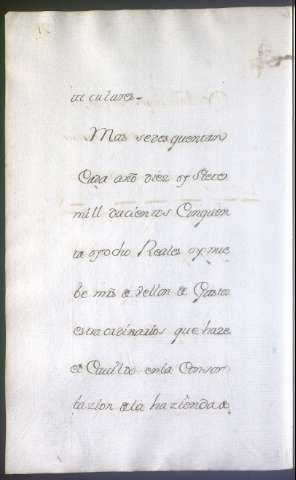 ticulares –
Mas seles quentan
Cada año diez y siete
mill ducientos Cinquen
ta y ocho Reales y nue
be mrs de vellon de Gastos
extraordinarios que haze
el Cavildo en la Conser
bazion de la hazienda de